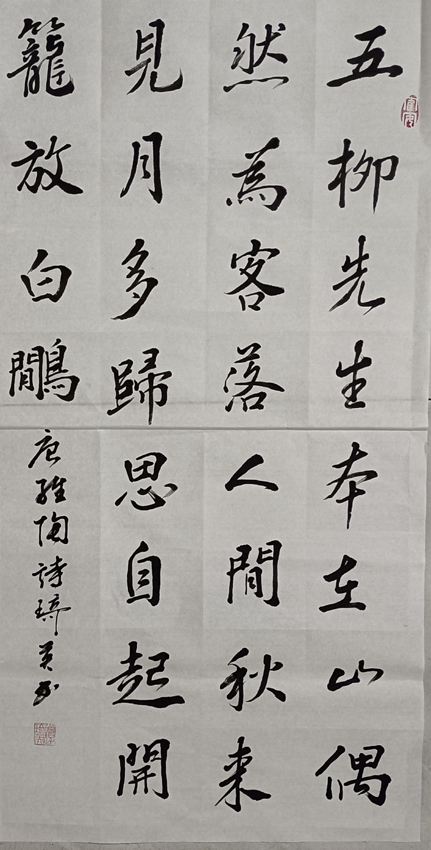 五柳先生本在山偶
然為客落人間秋来
見月多歸思自起開
籠放白鷴
唐雍陶詩琦英书